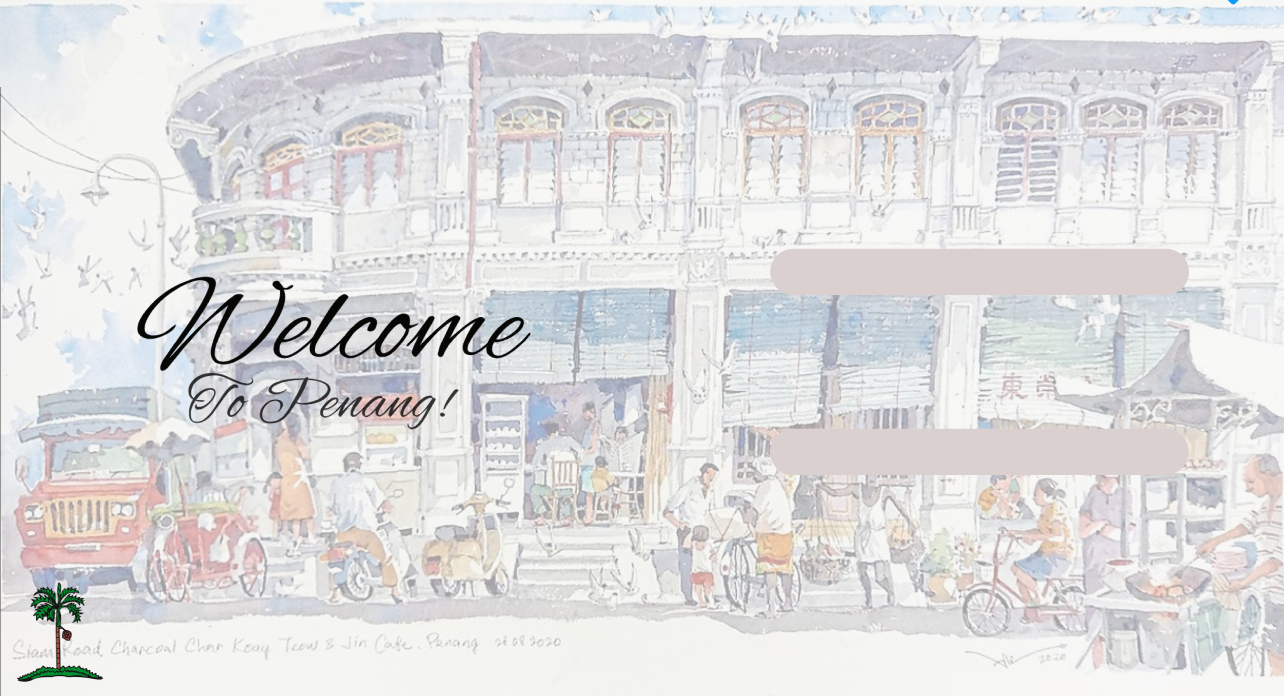 Welcome
To Penang!
東崇
Siam Road Charcoal Char Koay Teow & Jin Cafe. Penang 28 08 2020
2020